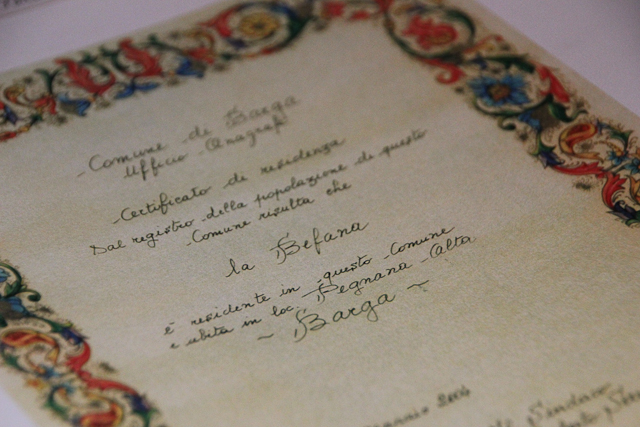 Comune di Barga
Ufficio Anagrafe
Certificato di residenza
Dal registro della popolazione di questo
Comune risulta che
la Befana
è residente in questo Comune
e abita in loc. Pegnana Alta
~ Barga ~
2004
Sindaco